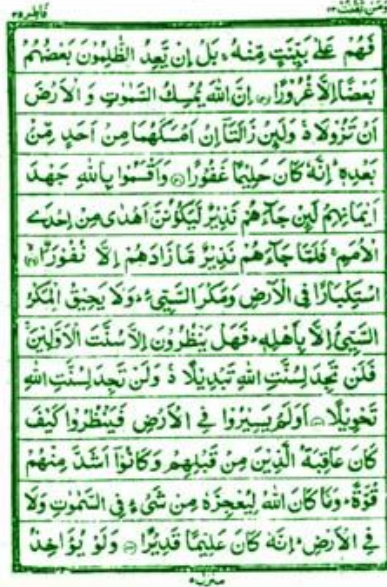 ومن يقنت ٢٢ فاطر ٣٥
فَهُمْ عَلٰى بَيِّنَتٍ مِّنْهُ ۚ بَلْ اِنْ يَّعِدُ الظّٰلِمُوْنَ بَعْضُهُمْ
بَعْضًا اِلَّا غُرُوْرًا ﴿۴۰﴾ اِنَّ اللّٰهَ يُمْسِكُ السَّمٰوٰتِ وَ الْاَرْضَ
اَنْ تَزُوْلَا ۚ وَلَئِنْ زَالَتَاۤ اِنْ اَمْسَكَهُمَا مِنْ اَحَدٍ مِّنْۢ
بَعْدِهٖ ؕ اِنَّهٗ كَانَ حَلِيْمًا غَفُوْرًا ﴿۴۱﴾ وَاَقْسَمُوْا بِاللّٰهِ جَهْدَ
اَيْمَانِهِمْ لَئِنْ جَآءَهُمْ نَذِيْرٌ لَّيَكُوْنُنَّ اَهْدٰى مِنْ اِحْدَى
الْاُمَمِ ۚ فَلَمَّا جَآءَهُمْ نَذِيْرٌ مَّا زَادَهُمْ اِلَّا نُفُوْرًا ﴿۴۲﴾
اسْتِكْبَارًا فِى الْاَرْضِ وَمَكْرَ السَّيِّئِ ؕ وَلَا يَحِيْقُ الْمَكْرُ
السَّيِّئُ اِلَّا بِاَهْلِهٖ ؕ فَهَلْ يَنْظُرُوْنَ اِلَّا سُنَّتَ الْاَوَّلِيْنَ ۚ
فَلَنْ تَجِدَ لِسُنَّتِ اللّٰهِ تَبْدِيْلًا ۚ وَلَنْ تَجِدَ لِسُنَّتِ اللّٰهِ
تَحْوِيْلًا ﴿۴۳﴾ اَوَلَمْ يَسِيْرُوْا فِى الْاَرْضِ فَيَنْظُرُوْا كَيْفَ
كَانَ عَاقِبَةُ الَّذِيْنَ مِنْ قَبْلِهِمْ وَكَانُوْۤا اَشَدَّ مِنْهُمْ
قُوَّةً ؕ وَمَا كَانَ اللّٰهُ لِيُعْجِزَهٗ مِنْ شَىْءٍ فِى السَّمٰوٰتِ وَلَا
فِى الْاَرْضِ ؕ اِنَّهٗ كَانَ عَلِيْمًا قَدِيْرًا ﴿۴۴﴾ وَلَوْ يُؤَاخِذُ
منزل ٥